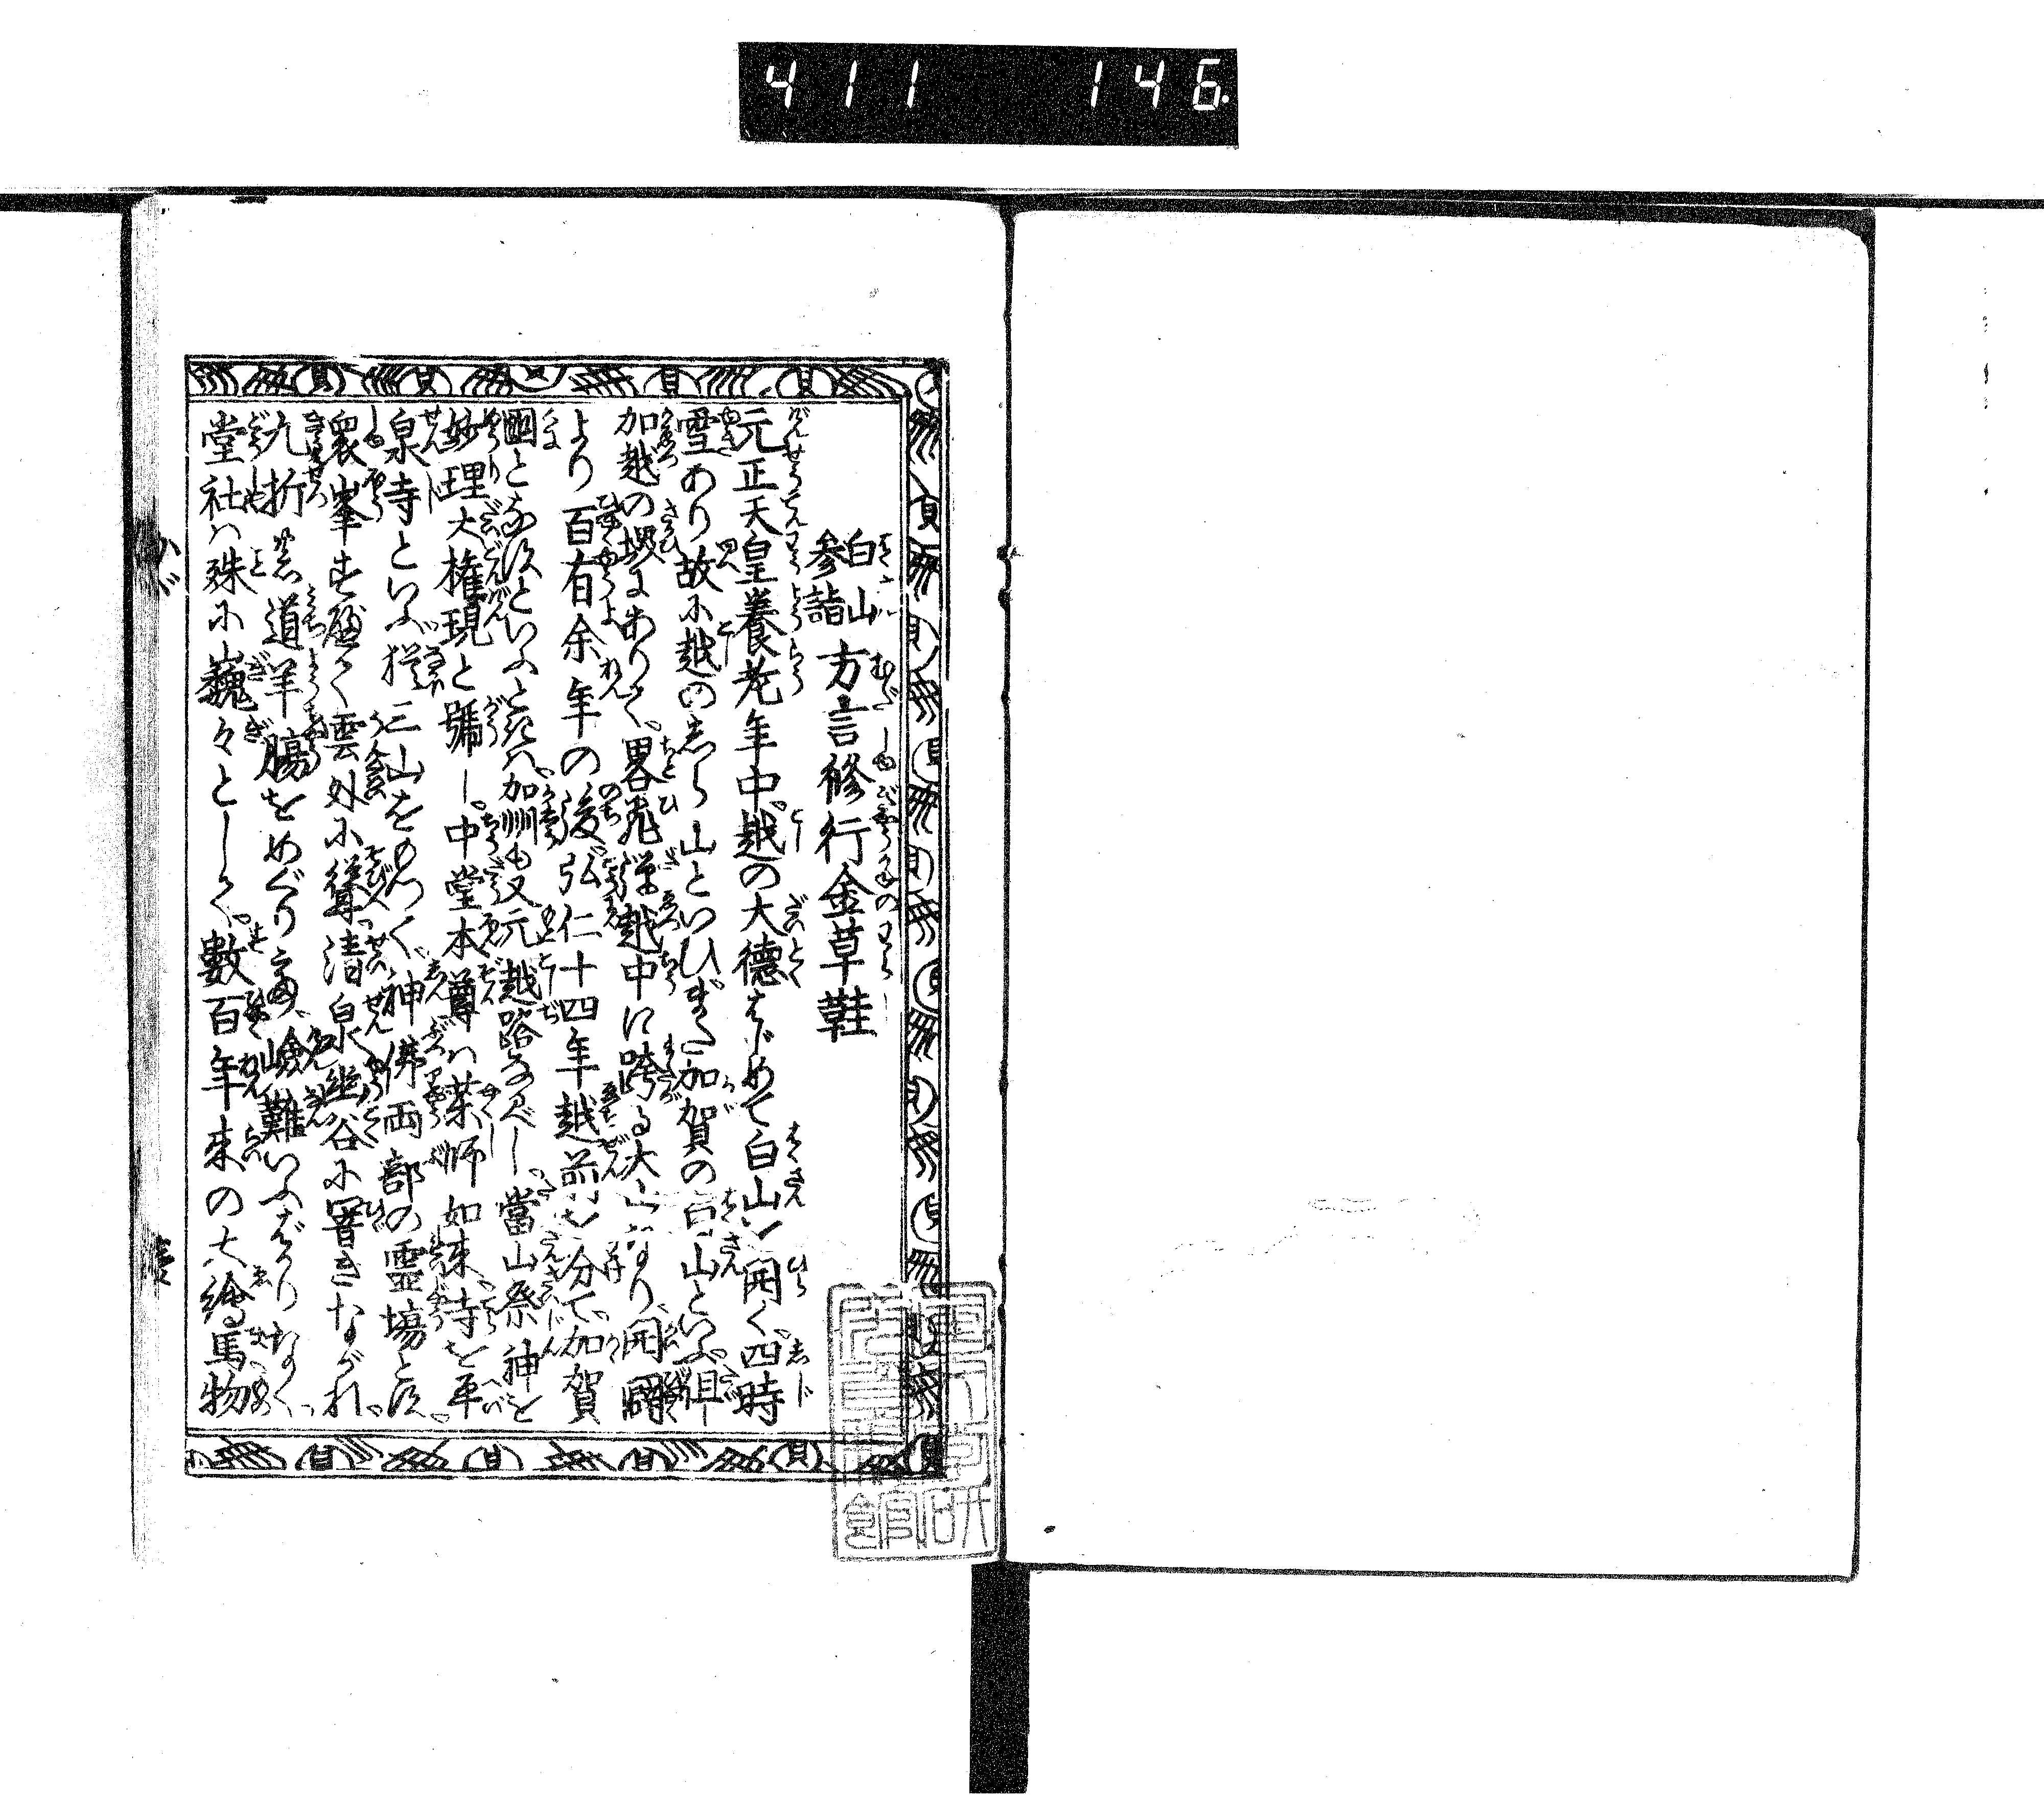 411 146
白山参詣 方言修行金草鞋
元正天皇養老年中。越の大徳はじめて白山を開く。四時
雪あり故に越のしら山といひ。また加賀の白山といふ。但し
加越の堺にありて、畧飛騨越中に跨る大山なり、開闢
より百有余年の後。弘仁十四年越前を分て。加賀
国となすといふときは。加州も又元越路なるべし。當山祭神を
妙理大権現と號し。中堂本尊は薬師如来。寺を平
泉寺といふ。三山をもつて、神佛両部の霊場とす。
衆峯遥けく雲外に聳。清泉幽谷に響きながれ。
九折の道羊腸をめぐり、嶮難いふばかりなく。
堂社は殊に巍々として。數百年来の大繪馬物